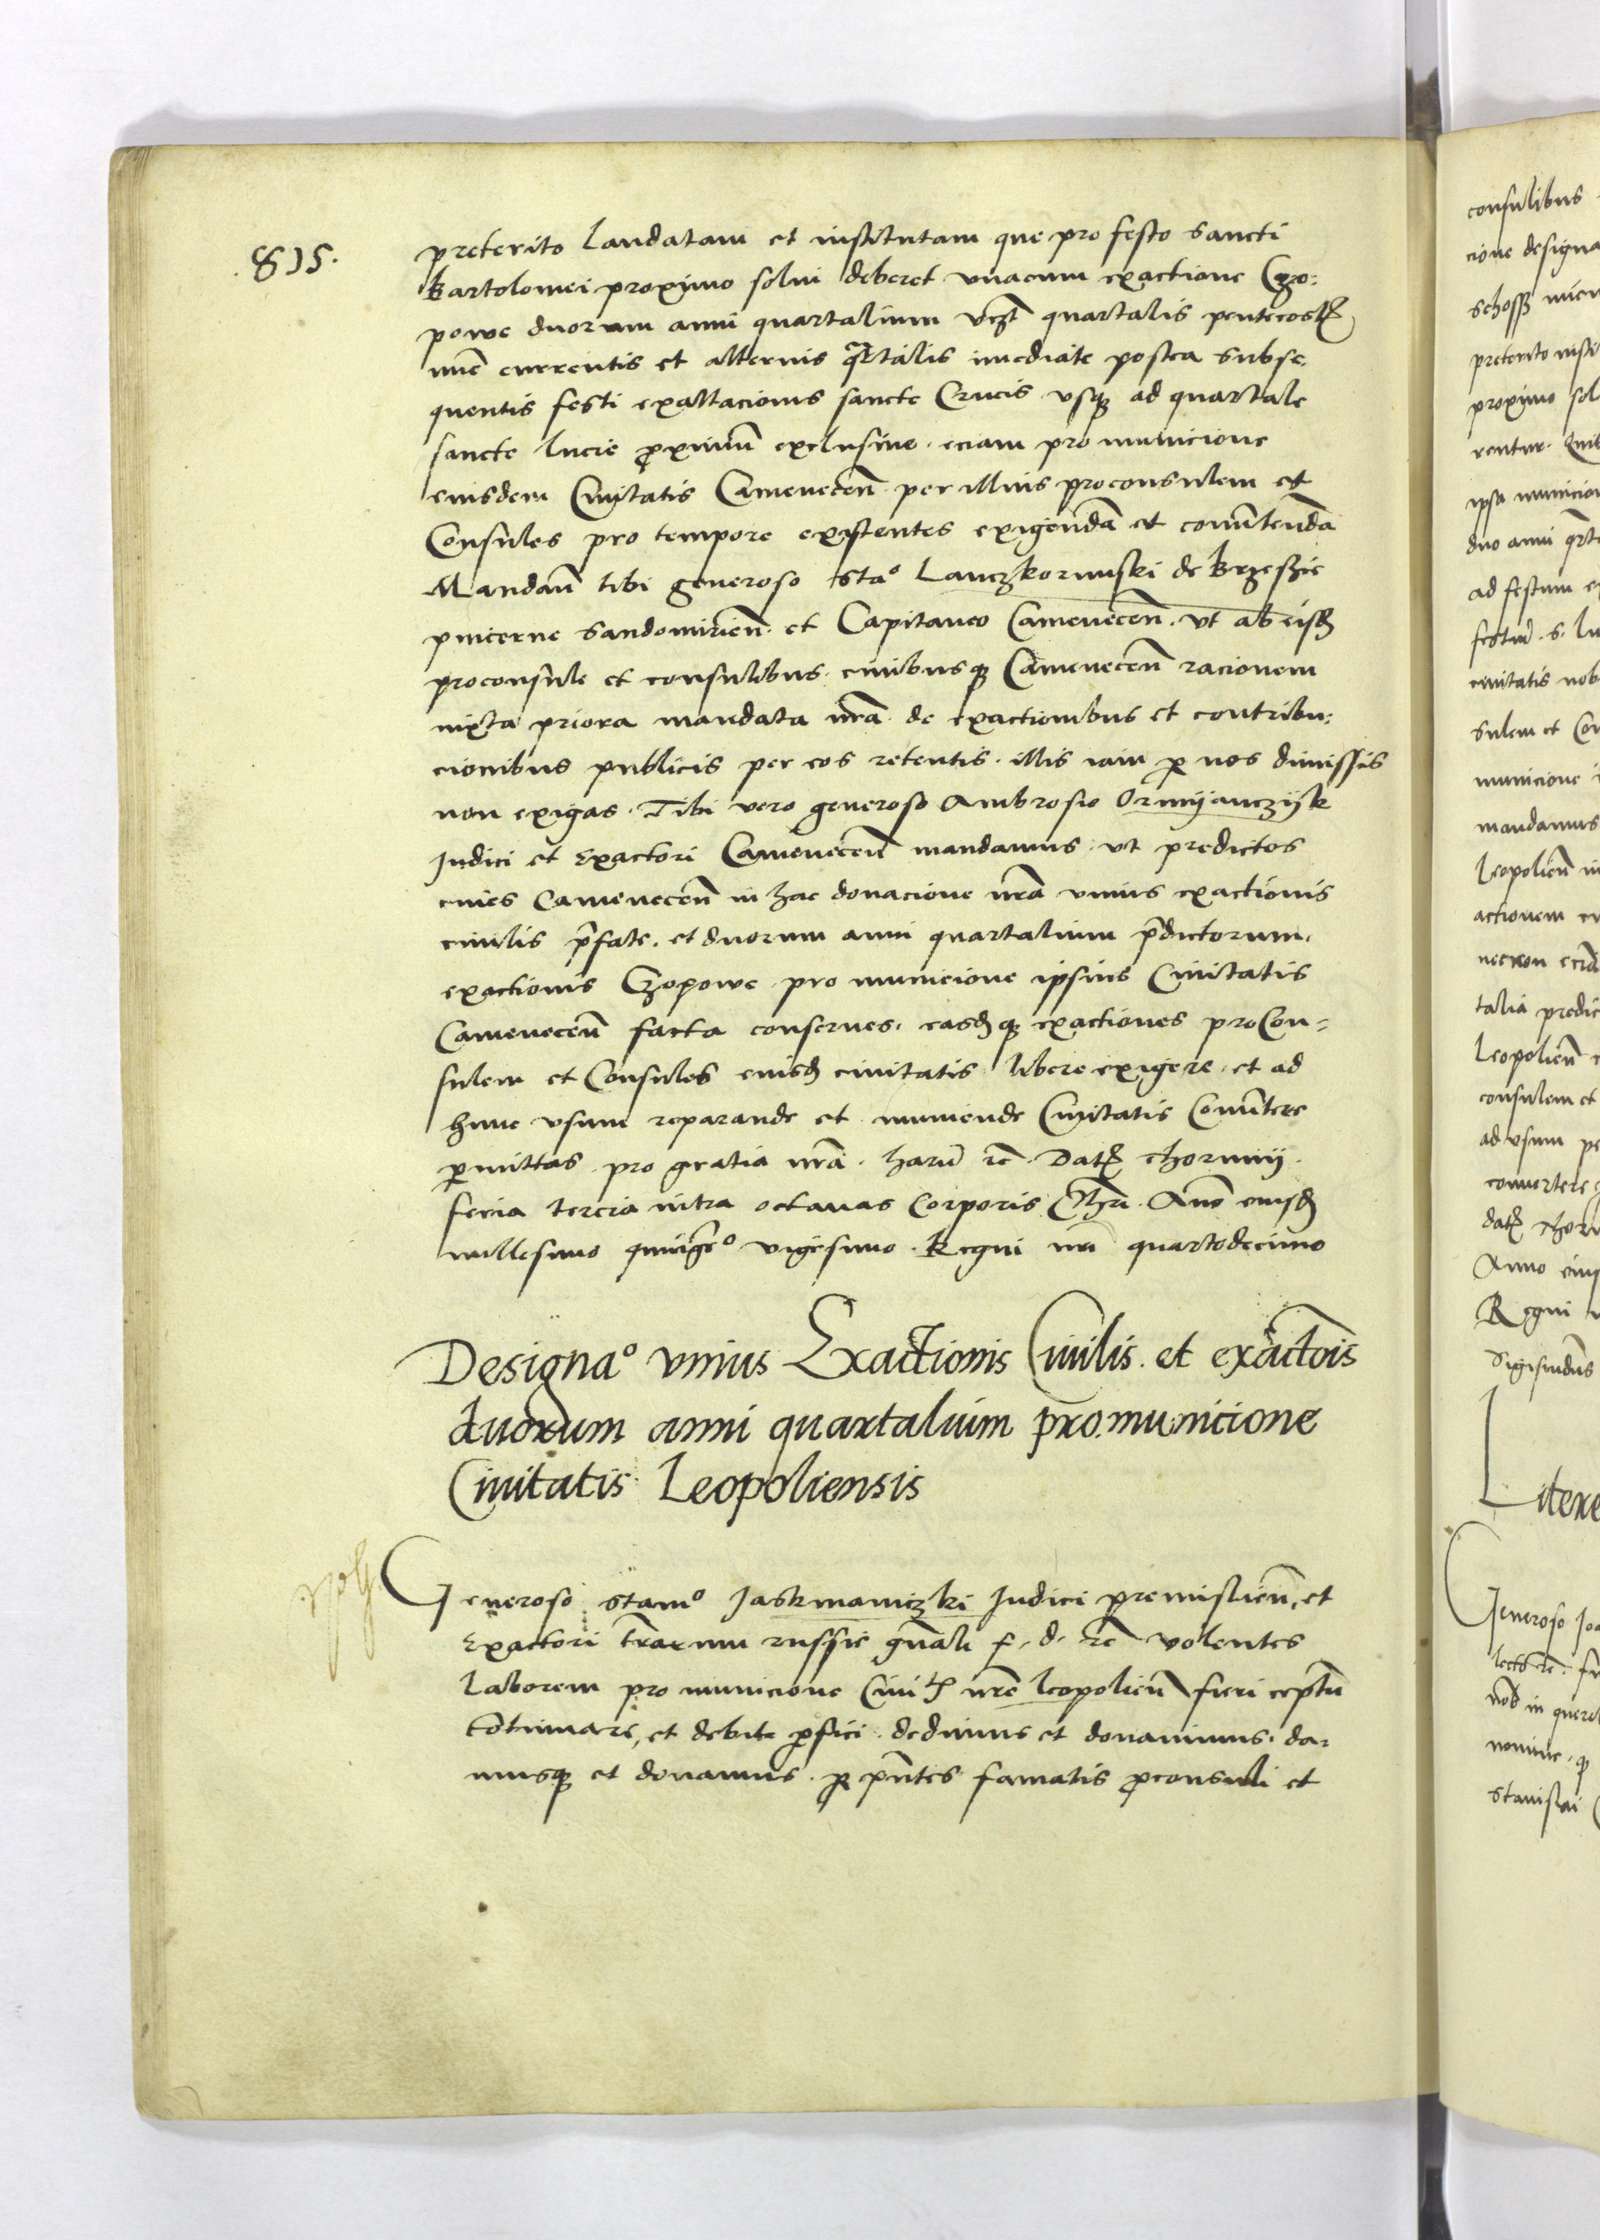 .815.
preterito laudatam et institutam que pro festo sancti
Bartolomei proximo solui deberet vnacum exactione Czo-
powe duorum anni quartalium vczt quartalis pentecost
nunc currentis et alterius qrtalis imediate postea subse-
quentis festi exaltacionis sancte Crucis vsq ad quartale
sancte lucie proximum exclusiue. eciam pro municione
eiusdem Ciuitatis Camenecen per illius proconsulem et
Consules pro tempore existentes exigendam et conuertendam
Mandam tibi generoso Stao Lanczkorunski de Brzeszie
pincerne Sandomirien. et Capitaneo Camenecen. vt ab eisd
proconsule et consulibus. ciuibusq Camenecen racionem
iuxta priora mandata nra de exactionibus et contribu-
cionibus publicis per eos retentis. illis iam p nos dimissis
non exigas. Tibi vero generoso Ambrosio Ormyanczyk
Judici et Exactori Camenecen mandamus. vt predictos
ciues Camenecen in hac donacione nra vnius exactionis
ciuilis pfate. et duorum anni quartalium pdictorum.
exactionis Czopowe pro municione ipsius Ciuitatis
Camenecen facta conserues. easdq exactiones proCon-
sulem et Consules eiusd ciuitatis libere exigere. et ad
hunc vsum reparande et muniende Ciuitatis Conuertere
pmittas pro gratia nra. harum rc. Dat Thorunij.
feria tercia infra octauas Corporis Chri. Anno eiusd
millesimo quingeo vigesimo. Regni nri quartodecimo
Designao vnius Exactionis Ciuilis. et exactois
duorum anni quartalium pro municione
Ciuitatis Leopoliensis
Generoso Stanio Jaskmaniczki Judici premislien, et
Exactori trarum russie gnali f. d. rc volentes
laborem pro municione Ciuit nre leopolien fieri ceptum
Continuare, et debite pfici. dedimus et donauimus. da-
musq et donamus. p pntes famatis proconsuli et
consulibus
cione designa
schoss
preterito insti
proximo sol
rentur. Quib
ipsa municion
duo anni qrt
ad festum
festum. s. lu
ciuitatis nob
sulem et Con
municione
mandamus
Leopolien in
actionem
necnon
talia predic
Leopolien
consulem et
ad vsum pe
conuertere
dat Thoru
Anno eius
Regni
Sigismundus
Litere
Generoso Joa
nob in querel
nomine. q
Stanislai